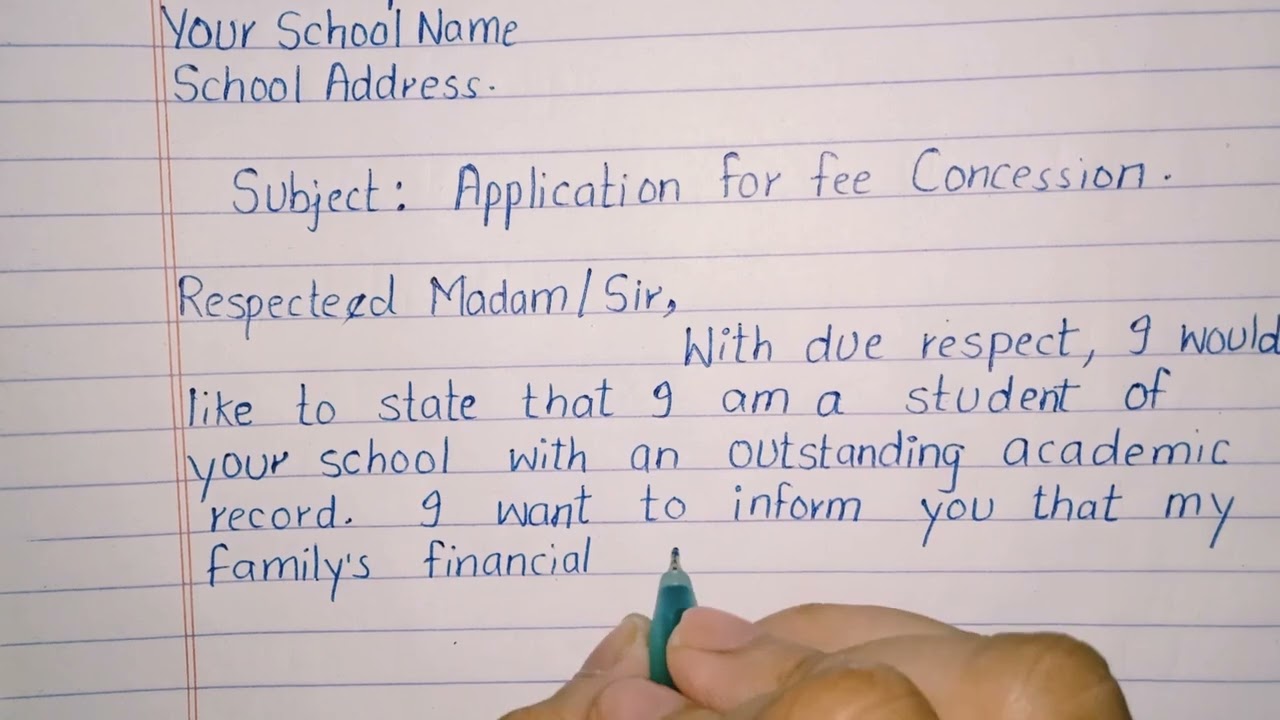 Your School Name
School Address.
Subject: Application for fee Concession.
Respected Madam/Sir,
With due respect, I would
like to state that I am a student of
your school with an outstanding academic
record. I want to inform you that my
family's financial